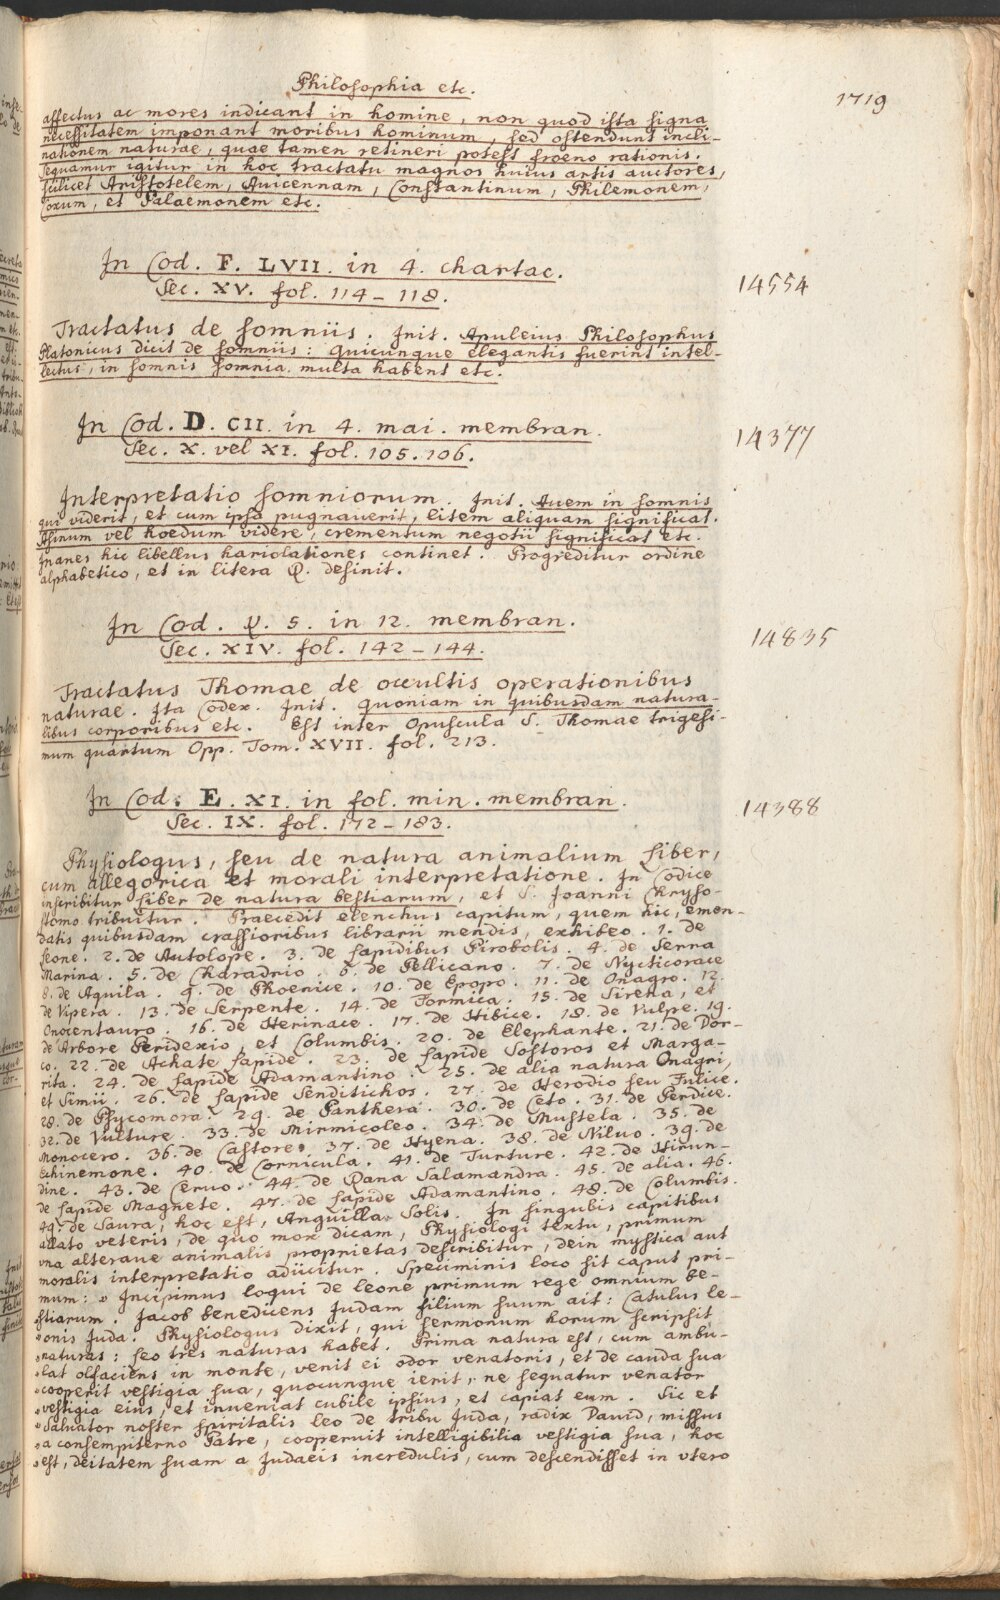 Philosophia etc.
1719
affectus ac mores indicant in homine, non quod ista signa
necessitatem imponant moribus hominum, sed ostendunt incli-
nationem naturae, quae tamen retineri potest froeno rationis.
Sequamur igitur in hoc tractatu magnos huius artis auctores,
scilicet Aristotelem, Auicennam, Constantinum, Philemonem,
Loxum, et Palaemonem etc.
In Cod. F. LVII. in 4. chartac.
14554
Sec. XV. fol. 114-118.
Tractatus de somniis. Init. Apuleius Philosophus
Platonicus dicit de somniis: Quicunque elegantis fuerint intel-
lectus, in somnis somnia multa habent etc.
In Cod. D. CII. in 4. mai. membran.
14377
Sec. X. vel XI. fol. 105.106.
Interpretatio somniorum. Init. Auem in somnis
qui viderit, et cum ipsa pugnauerit, litem aliquam significat.
Asinum vel hoedum videre, crementum negotii significat etc.
Inanes hic libellus hariolationes continet. Progreditur ordine
alphabetico, et in litera Q. definit.
In Cod. Q. 5. in 12. membran.
14835
Sec. XIV. fol. 142-144.
Tractatus Thomae de occultis operationibus
naturae. Ita Codex. Init. Quoniam in quibusdam natura-
libus corporibus etc. Est inter Opuscula S. Thomae trigesi-
mum quartum Opp. Tom. XVII. fol. 213.
In Cod. E. XI. in fol. min. membran.
14388
Sec. IX. fol. 172-183.
Physiologus, seu de natura animalium Liber,
cum allegorica et morali interpretatione. In Codice
inscribitur Liber de natura bestiarum, et S. Joanni Chryso-
stomo tribuitur. Praecedit elenchus capitum, quem hic, emen-
datis quibusdam crassioribus librarii mendis, exhibeo. 1. de
Leone. 2. de Autolope. 3. de Lapidibus Pirobolis. 4. de Serra
Marina. 5. de Charadrio. 6. de Pellicano. 7. de Nycticorace
8. de Aquila. 9. de Phoenice. 10. de Epopo. 11. de Onagro. 12.
de Vipera. 13. de Serpente. 14. de Formica. 15. de Sirena, et
Onocentauro. 16. de Herinace. 17. de Hibice. 18. de Vulpe. 19.
de Arbore Peridexio, et Columbis. 20. de Elephante. 21. de Dor-
co. 22. de Achate Lapide. 23. de Lapide Sostoros et Marga-
rita. 24. de Lapide Adamantino. 25. de alia natura Onagri,
et Simii. 26. de Lapide Senditichos. 27. de Herodio seu Fulice.
28. de Psycomora. 29. de Panthera. 30. de Ceto. 31. de Perdice.
32. de Vulture. 33. de Mirmicoleo. 34. de Mustela. 35. de
Monocero. 36. de Castore. 37. de Hyena. 38. de Niluo. 39. de
Echinemone. 40. de Cornicula. 41. de Turture. 42. de Hirun-
dine. 43. de Ceruo. 44. de Rana Salamandra. 45. de alia. 46.
de Lapide Magnete. 47. de Lapide Adamantino. 48. de Columbis.
49. de Saura, hoc est, Anguilla Solis. In singulis capitibus
allato veteris, de quo mox dicam, Physiologi textu, primum
vna alteraue animalis proprietas describitur, dein mystica aut
moralis interpretatio adiicitur. Speciminis loco sit caput pri-
mum: » Incipimus loqui de leone primum rege omnium be-
»stiarum. Jacob benedicens Judam filium suum ait: Catulus le-
»onis Juda. Physiologus dixit, qui sermonum horum scripsit
»naturas: Leo tres naturas habet. Prima natura est, cum ambu-
»lat olfaciens in monte, venit ei odor venatoris, et de cauda sua
»cooperit vestigia sua, quocunque ierit, ne sequatur venator
»vestigia eius, et inueniat cubile ipsius, et capiat eum. Sic et
»Saluator noster spiritalis leo de tribu Juda, radix Dauid, missus
»a consempiterno Patre, cooperuit intelligibilia vestigia sua, hoc
»est, deitatem suam a Judaeis incredulis, cum descendisset in vtero